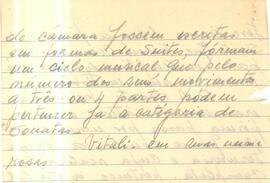 de câmara fossem escritas
em formas de Suites, formam
um ciclo musical que pelo
número dos seus movimentos
a três ou 4 partes pódem
pertencer já a categoria de
sonatas.
Vitali - em suas nume
rosas